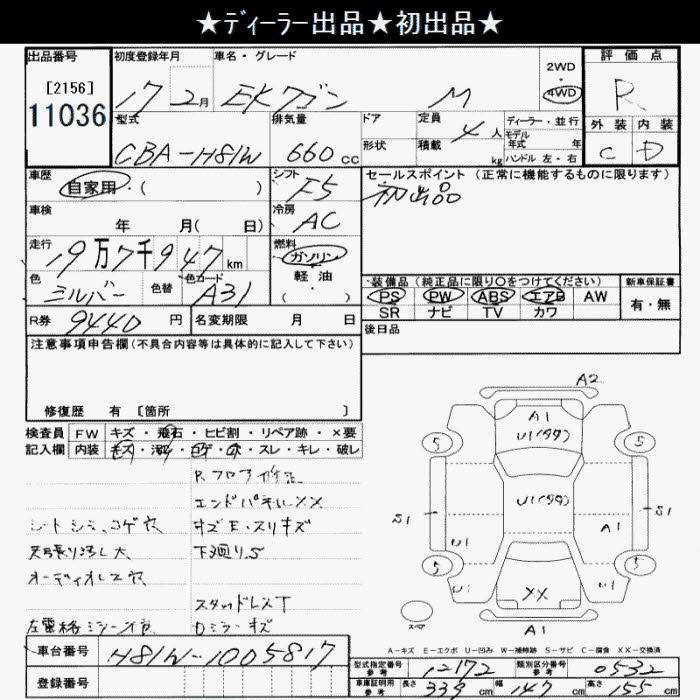 ★ディーラー出品★初出品★
出品番号
[2156]
11036
初度登録年月
17 2月
車名・グレード
EKワゴン M
2WD
・
4WD
評価点
R
外装 内装
C D
型式
CBA-H81W
排気量
660 cc
ドア
形状
定員
4人
積載
kg
ディーラー・並行
モデル年式 年
ハンドル 左・右
車歴
自家用・( )
シフト
F5
セールスポイント (正常に機能するものに限ります)
初出品
車検
年 月( 日)
冷房
AC
走行
19万7千947km
燃料
ガソリン
軽油
・( )
色
シルバー
色替
色コード
A31
装備品(純正品に限り○をつけてください)
PS PW ABS エアB AW
SR ナビ TV カワ
新車保証書
有・無
R券 9440円
名変期限 月 日
後日品
注意事項申告欄(不具合内容等は具体的に記入して下さい)
修復歴 有 [箇所 ]
検査員記入欄
FW キズ・飛石・ヒビ割・リペア跡・×要
内装 キズ・汚れ・コゲ・穴・スレ・キレ・破レ
シートシミ、コゲ穴
天張り汚レ大
オーディオレス穴
エンドパネルXX
キズE・スリキズ
下廻りS
スタッドレスT
Dミラーキズ
A2
A1
U1(タタ)
5 5
U1(タタ)
S1 S1
U1 A1
5 5
U1 U1
XX
スペア
A1
A-キズ E-エクボ U-凹み W-補修跡 S-サビ C-腐食 XX-交換済
車台番号 H81W-1005817
登録番号
型式指定番号 参考 12172
類別区分番号 参考 0532
車庫証明用 参考 長さ 339cm 幅 147cm 高さ 155cm